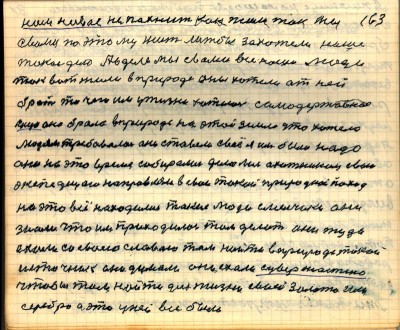 нам никак не пахнит как жили так мы (63
свали поэтому жит литбы захотели наше
такое дило Авделе мы с вами все поки люди
так вот жили вприроде они хотели от ней
брать то чего им у жизни хотилос самодержавное
оно брала вприроде на этой земле это хотело
людям требовалос они ставили своё и им было надо
они на это время собирались дило охотником свою
экспедицию направили в свой такой природной поход
на это всё находилис такие люди смельчики они
знали что им приходилос там делат они туда
ехали со своею славою там найти вприроде такой
источник они думали они ехали сувереностию
чтобы там найти для жизни своей золото или
серебро а это у ней всё было